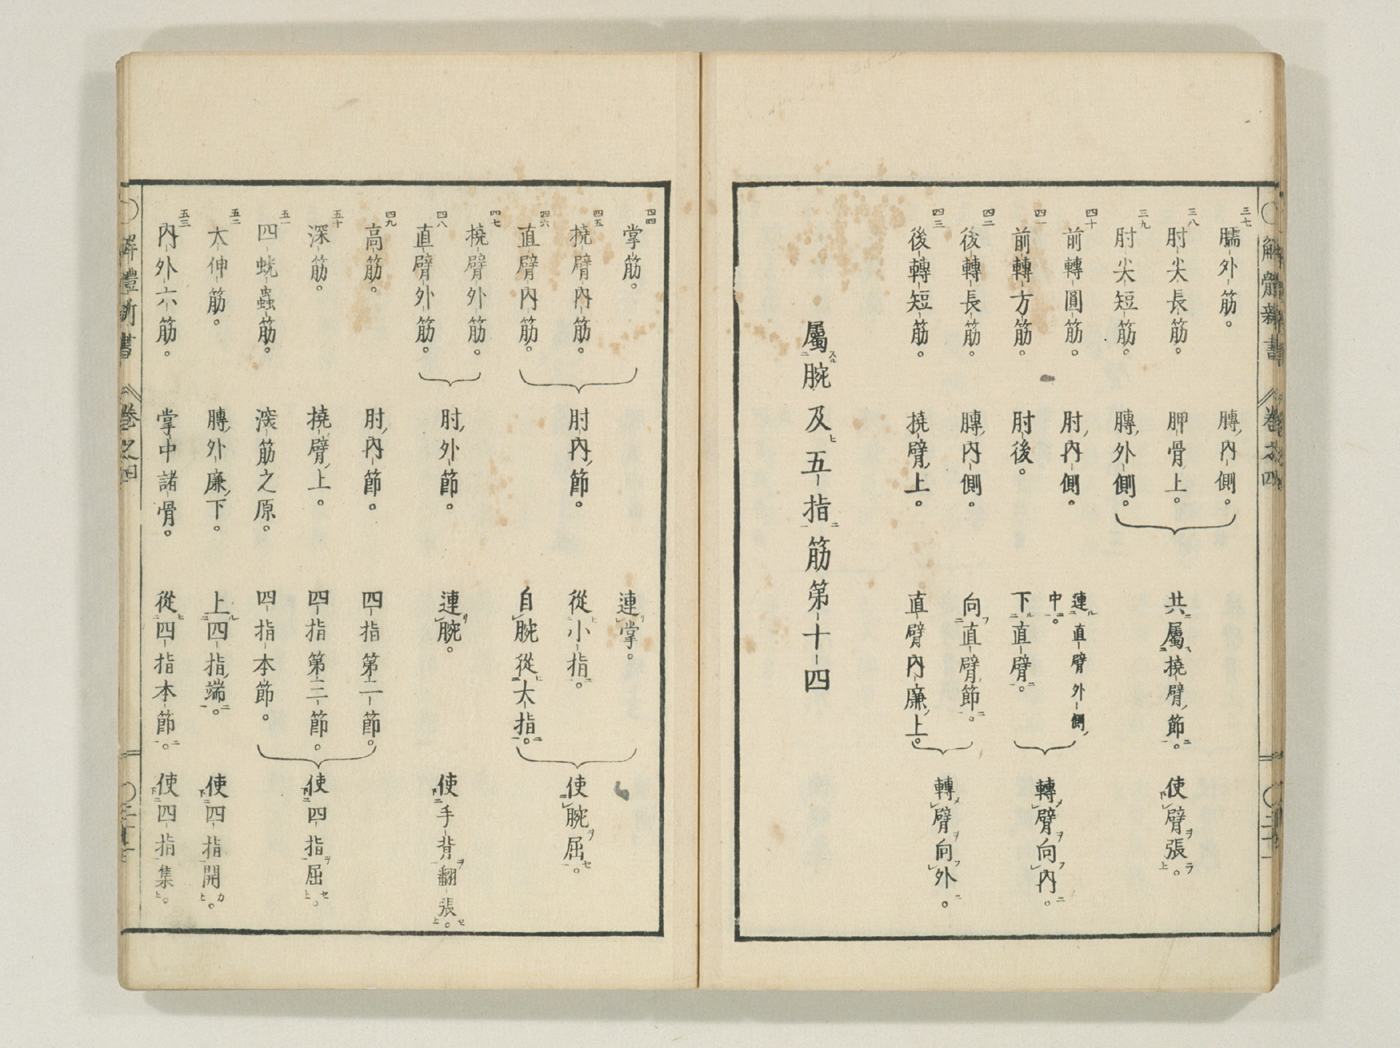 解體新書 卷之四
三七 臑外筋。 膊内側。
三八 肘尖長筋。 胛骨上。 共屬撓臂節。 使臂張。
三九 肘尖短筋。 膊外側。
四十 前轉圓筋。 肘内側。 連直臂外側中。
四一 前轉方筋。 肘後。 下直臂。 轉臂向内。
四二 後轉長筋。 膊内側。 向直臂節。
四三 後轉短筋。 撓臂上。 直臂内廉上。 轉臂向外。
屬腕及五指筋第十四
四四 掌筋。 連掌。
四五 撓臂内筋。 肘内節。 從小指。 使腕屈。
四六 直臂内筋。 自腕從大指。
四七 撓臂外筋。
四八 直臂外筋。 肘外節。 連腕。 使手背翻張。
四九 高筋。 肘内節。 四指第二節。
五十 深筋。 撓臂上。 四指第三節。 使四指屈。
五一 四蛲蟲筋。 深筋之原。 四指本節。
五二 大伸筋。 膊外廉下。 上四指端。 使四指開。
五三 内外六筋。 掌中諸骨。 從四指本節。 使四指集。
解體新書 卷之四